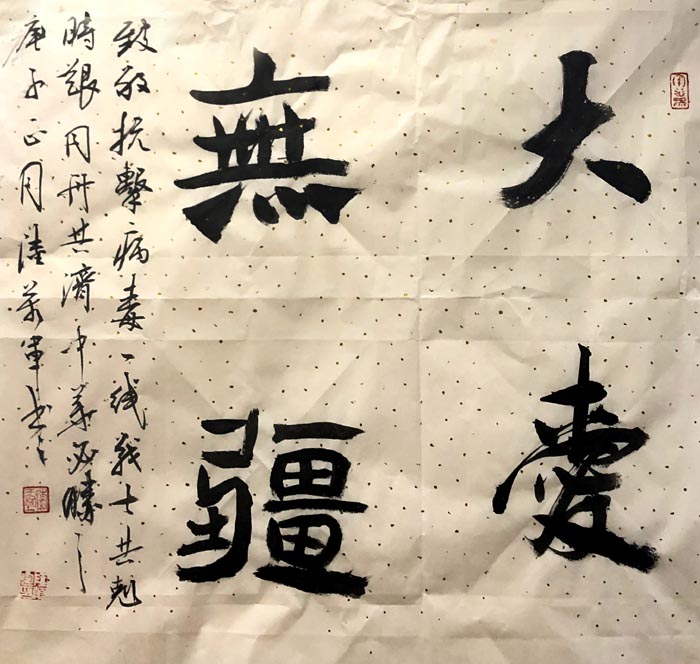 大愛
無疆
致敬抗擊病毒一线战士共剋
時艱同舟共濟中華必勝
庚子正月潘萬軍書